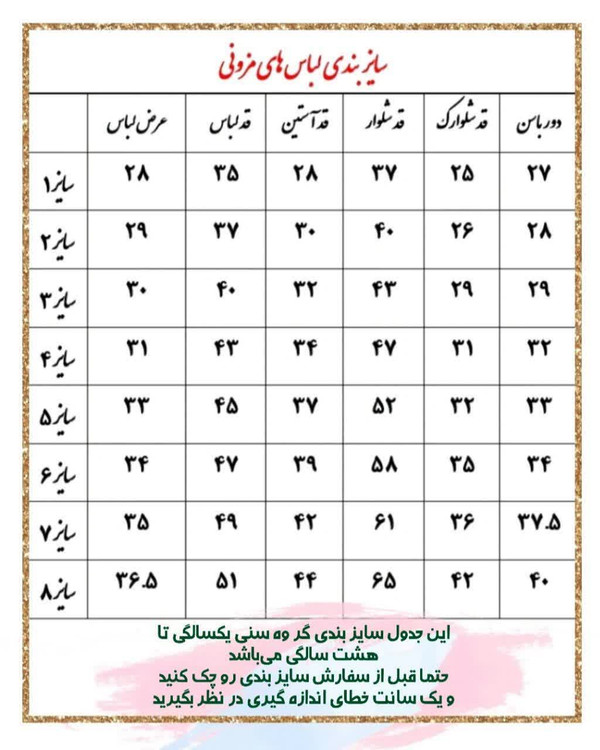 سایز بندی لباس های مزونی
دور باسن قد شلوارک قد شلوار قد آستین قد لباس عرض لباس
۲۷ ۲۵ ۳۷ ۲۸ ۳۵ ۲۸ سایز۱
۲۸ ۲۶ ۴۰ ۳۰ ۳۷ ۲۹ سایز۲
۲۹ ۲۹ ۴۳ ۳۲ ۴۰ ۳۰ سایز۳
۳۲ ۳۱ ۴۷ ۳۴ ۴۳ ۳۱ سایز۴
۳۳ ۳۲ ۵۲ ۳۷ ۴۵ ۳۳ سایز۵
۳۴ ۳۵ ۵۸ ۳۹ ۴۷ ۳۴ سایز۶
۳۷.۵ ۳۶ ۶۱ ۴۲ ۴۹ ۳۵ سایز۷
۴۰ ۴۲ ۶۵ ۴۴ ۵۱ ۳۶.۵ سایز۸
این جدول سایز بندی گر وه سنی یکسالگی تا
هشت سالگی می‌باشد
حتما قبل از سفارش سایز بندی رو چک کنید
و یک سانت خطای اندازه گیری در نظر بگیرید